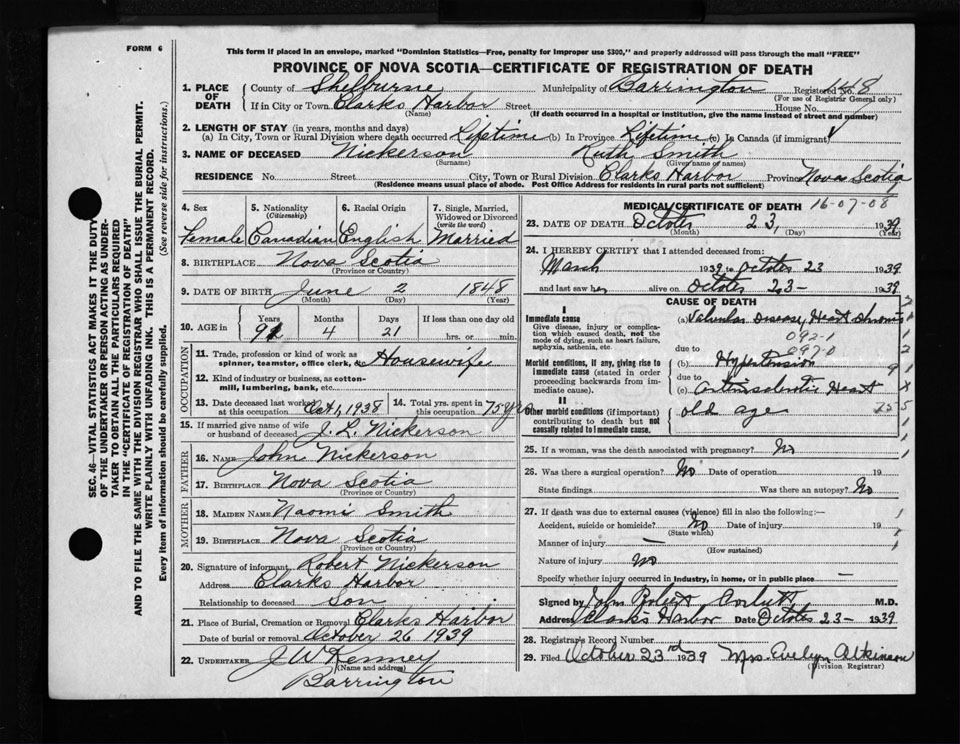 FORM 6
This form if placed in an envelope, marked "Dominion Statistics—Free, penalty for improper use $300," and properly addressed will pass through the mail "FREE"
PROVINCE OF NOVA SCOTIA—CERTIFICATE OF REGISTRATION OF DEATH
SEC. 46—VITAL STATISTICS ACT MAKES IT THE DUTY
OF THE UNDERTAKER OR PERSON ACTING AS UNDER-
TAKER TO OBTAIN ALL THE PARTICULARS REQUIRED
IN THE "CERTIFICATE OF REGISTRATION OF DEATH"
AND TO FILE THE SAME WITH THE DIVISION REGISTRAR WHO SHALL ISSUE THE BURIAL PERMIT.
WRITE PLAINLY WITH UNFADING INK. THIS IS A PERMANENT RECORD.
Every item of information should be carefully supplied. (See reverse side for instructions.)
1. PLACE OF DEATH County of Shelburne Municipality of Barrington Registered No. 148
(For use of Registrar General only)
If in City or Town Clarks Harbor Street House No.
(Name) (If death occurred in a hospital or institution, give the name instead of street and number)
2. LENGTH OF STAY (in years, months and days)
(a) In City, Town or Rural Division where death occurred Lifetime (b) In Province Lifetime (c) In Canada (if immigrant)
3. NAME OF DECEASED Nickerson Ruth Smith
(Surname) (Given name or names)
RESIDENCE No. Street City, Town or Rural Division Clarks Harbor Province Nova Scotia
(Residence means usual place of abode. Post Office Address for residents in rural parts not sufficient)
4. Sex 5. Nationality (Citizenship) 6. Racial Origin 7. Single, Married, Widowed or Divorced (write the word)
Female Canadian English Married
8. BIRTHPLACE Nova Scotia
(Province or Country)
9. DATE OF BIRTH June 2 1848
(Month) (Day) (Year)
10. AGE in Years Months Days If less than one day old
91 4 21 hrs. or min.
OCCUPATION
11. Trade, profession or kind of work as spinner, teamster, office clerk, etc. Housewife
12. Kind of industry or business, as cotton-mill, lumbering, bank, etc.
13. Date deceased last worked at this occupation Oct 1, 1938 14. Total yrs. spent in this occupation 75 yrs
15. If married give name of wife or husband of deceased J. L. Nickerson
FATHER
16. Name John Nickerson
17. Birthplace Nova Scotia
(Province or Country)
MOTHER
18. Maiden Name Naomi Smith
19. Birthplace Nova Scotia
(Province or Country)
20. Signature of informant Robert Nickerson
Address Clarks Harbor
Relationship to deceased Son
21. Place of Burial, Cremation or Removal Clarks Harbor
Date of burial or removal October 26 1939
22. UNDERTAKER J W Kenney
(Name and address)
Barrington
MEDICAL CERTIFICATE OF DEATH 16-07-08
23. DATE OF DEATH October 23, 1939
(Month) (Day) (Year)
24. I HEREBY CERTIFY that I attended deceased from:
March 1939 to October 23 1939
and last saw her alive on October 23- 1939
CAUSE OF DEATH
I
Immediate cause (a) Valvular Disease, Heart Chronic
Give disease, injury or complication which caused death, not the mode of dying, such as heart failure, asphyxia, asthenia, etc.
092-1
due to 097-0
Morbid conditions, if any, giving rise to immediate cause (stated in order proceeding backwards from immediate cause). (b) Hypertension
due to
(c) Heart
II
Other morbid conditions (if important) contributing to death but not causally related to immediate cause. old age
25. If a woman, was the death associated with pregnancy? No
26. Was there a surgical operation? No Date of operation 19
State findings Was there an autopsy? No
27. If death was due to external causes (violence) fill in also the following:—
Accident, suicide or homicide? No Date of injury 19
(State which)
Manner of injury —
(How sustained)
Nature of injury No
Specify whether injury occurred in industry, in home, or in public place —
Signed by John Robert Corbett M.D.
Address Clarks Harbor Date October 23- 1939
28. Registrar's Record Number
29. Filed October 23rd 1939 Mrs. Evelyn Atkinson
(Division Registrar)